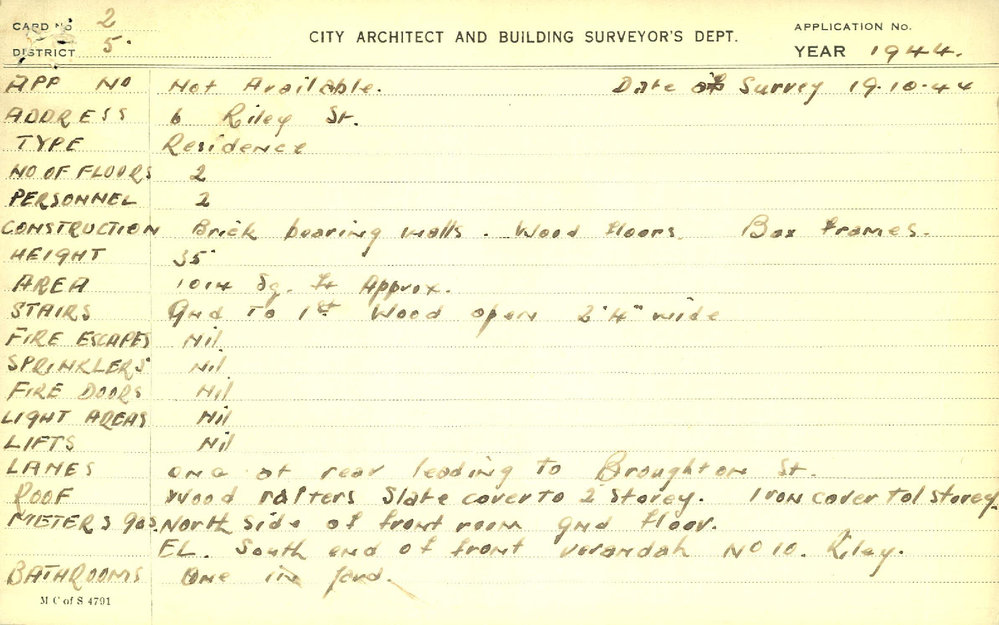 CARD No 2
DISTRICT 5.
CITY ARCHITECT AND BUILDING SURVEYOR'S DEPT.
APPLICATION No.
YEAR 1944.
APP NO Not Available. Date of Survey 19.10.44
ADDRESS 6 Riley St.
TYPE Residence
NO OF FLOORS 2
PERSONNEL 2
CONSTRUCTION Brick bearing walls. Wood floors. Box frames.
HEIGHT 35'
AREA 1014 Sq. ft Approx.
STAIRS Gnd To 1st Wood open 2'4" wide
FIRE ESCAPES Nil
SPRINKLERS Nil
FIRE DOORS Nil
LIGHT AREAS Nil
LIFTS Nil
LANES one at rear leading to Broughton St.
ROOF Wood rafters Slate cover to 2 Storey. Iron cover to 1 storey.
METERS gas. North side of front room gnd floor.
EL. South end of front verandah NO 10. Riley.
BATHROOMS One in yard.
M C of S 4791